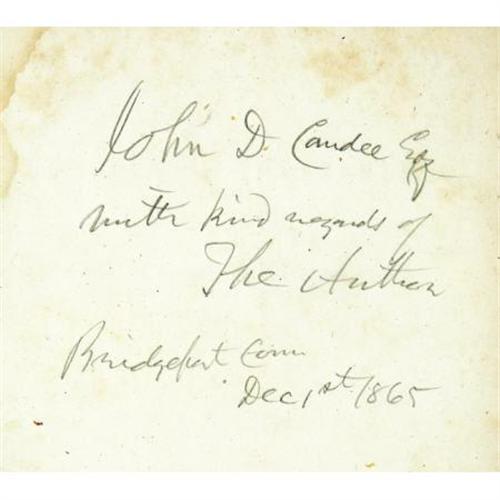 John D. Candee Esq
with kind regards of
The Author
Bridgeport Conn
Dec 1st 1865